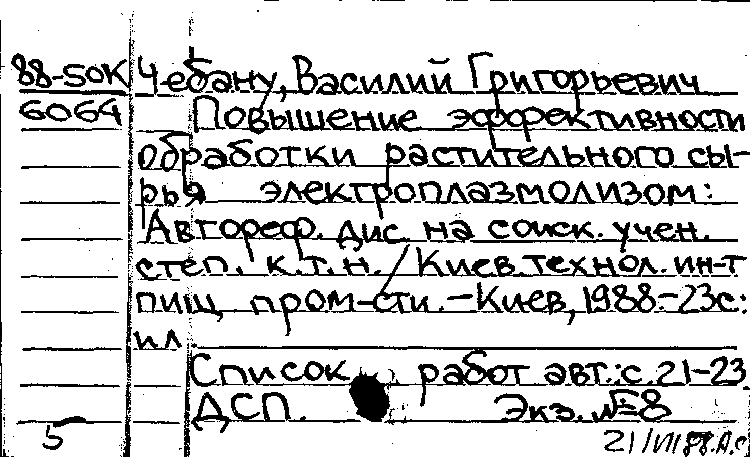 88-50К Чебану, Василий Григорьевич
6064 Повышение эффективности
обработки растительного сы-
рья электроплазмолизом:
Автореф. дис. на соиск. учен.
степ. к.т.н. / Киев. технол. ин-т
пищ. пром-сти. - Киев, 1988. - 23с.:
ил.
Список работ авт.: с. 21-23
ДСП. Экз. №8
5 21/VII 88.